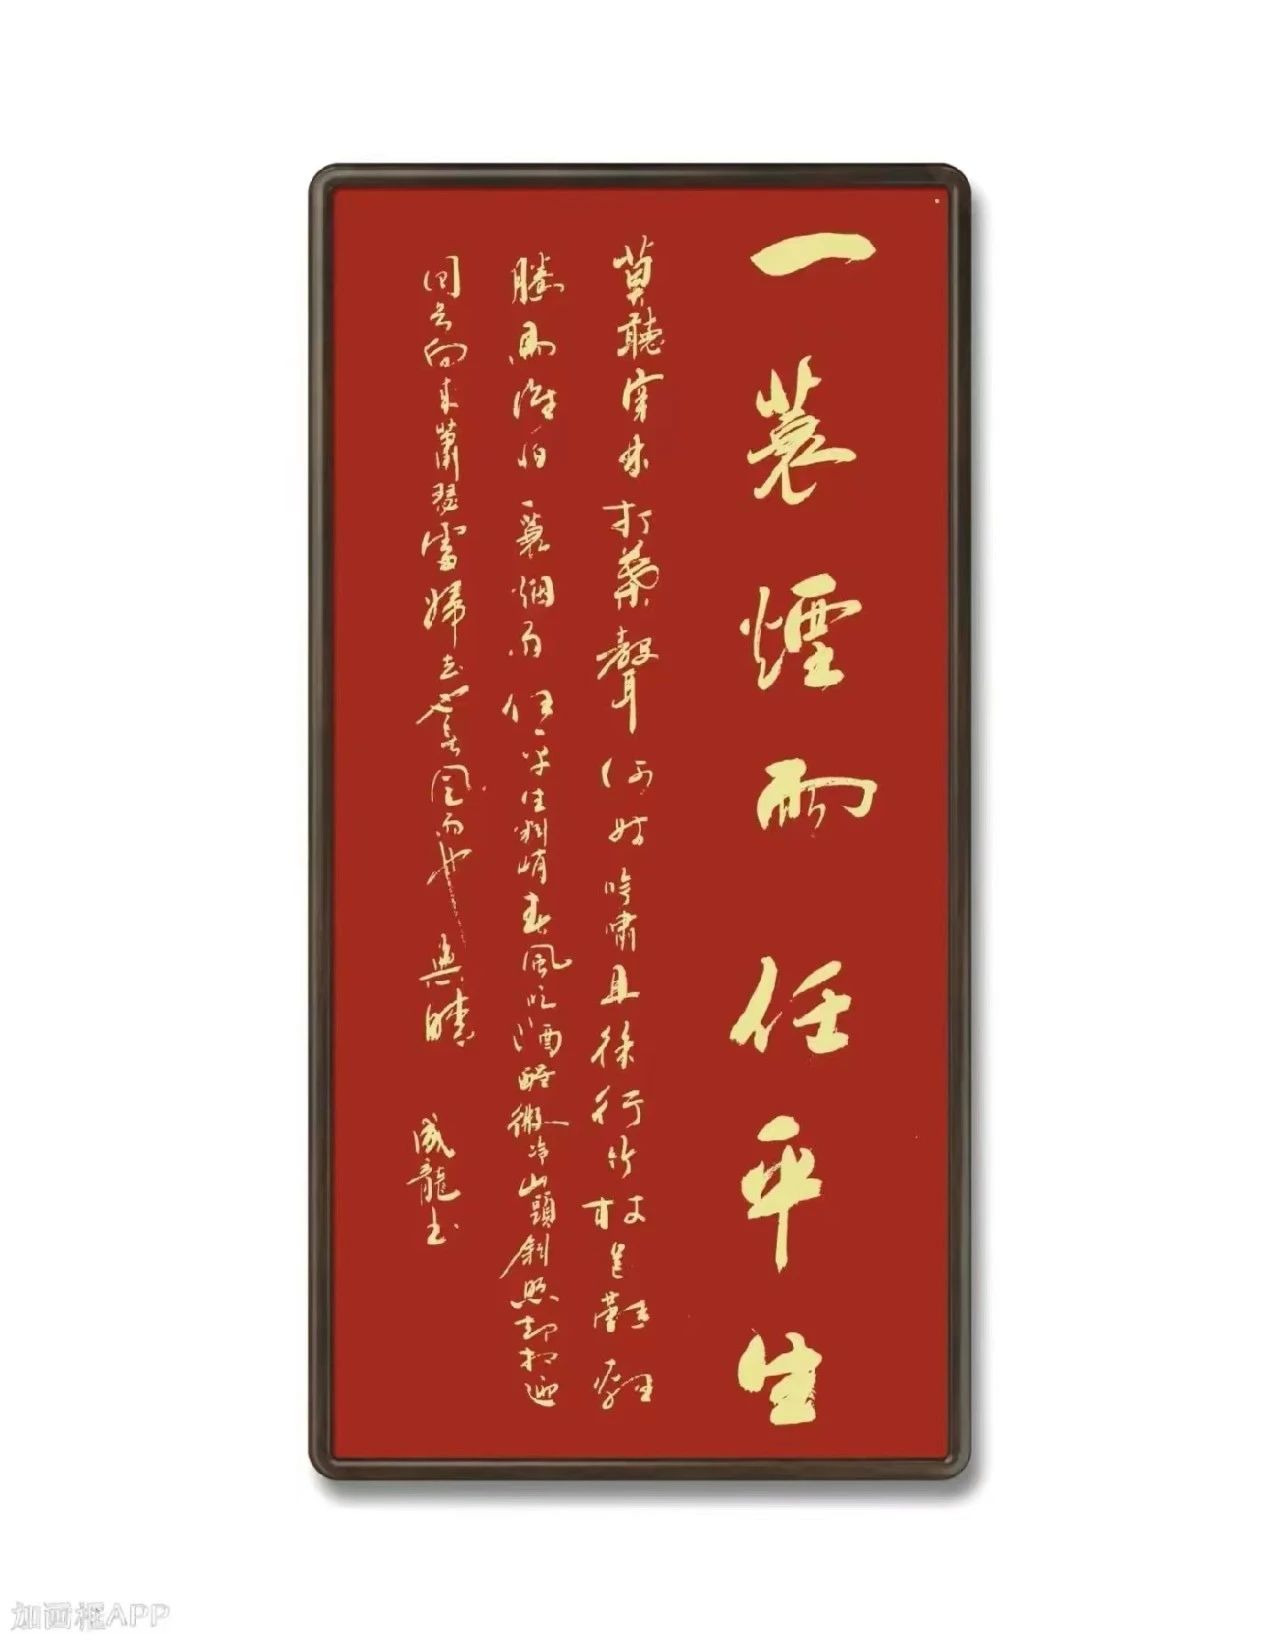 一蓑煙雨任平生
莫聽穿林打葉聲何妨吟嘯且徐行竹杖芒鞋輕
勝馬誰怕一蓑烟雨任平生料峭春風吹酒醒微冷山頭斜照却相迎
回首向来蕭瑟處歸去也無風雨也無晴
龍书
加画框APP